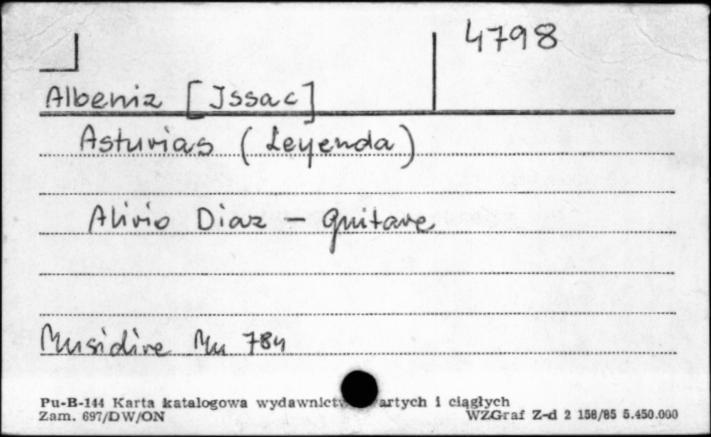 4798
Albeniz [Issac]
Asturias (Leyenda)
Alirio Diaz - guitare
Musidire Mu 784
Pu-B-144 Karta katalogowa wydawnictw artych i ciągłych
Zam. 697/DW/ON WZGraf Z-d 2 158/85 5.450.000